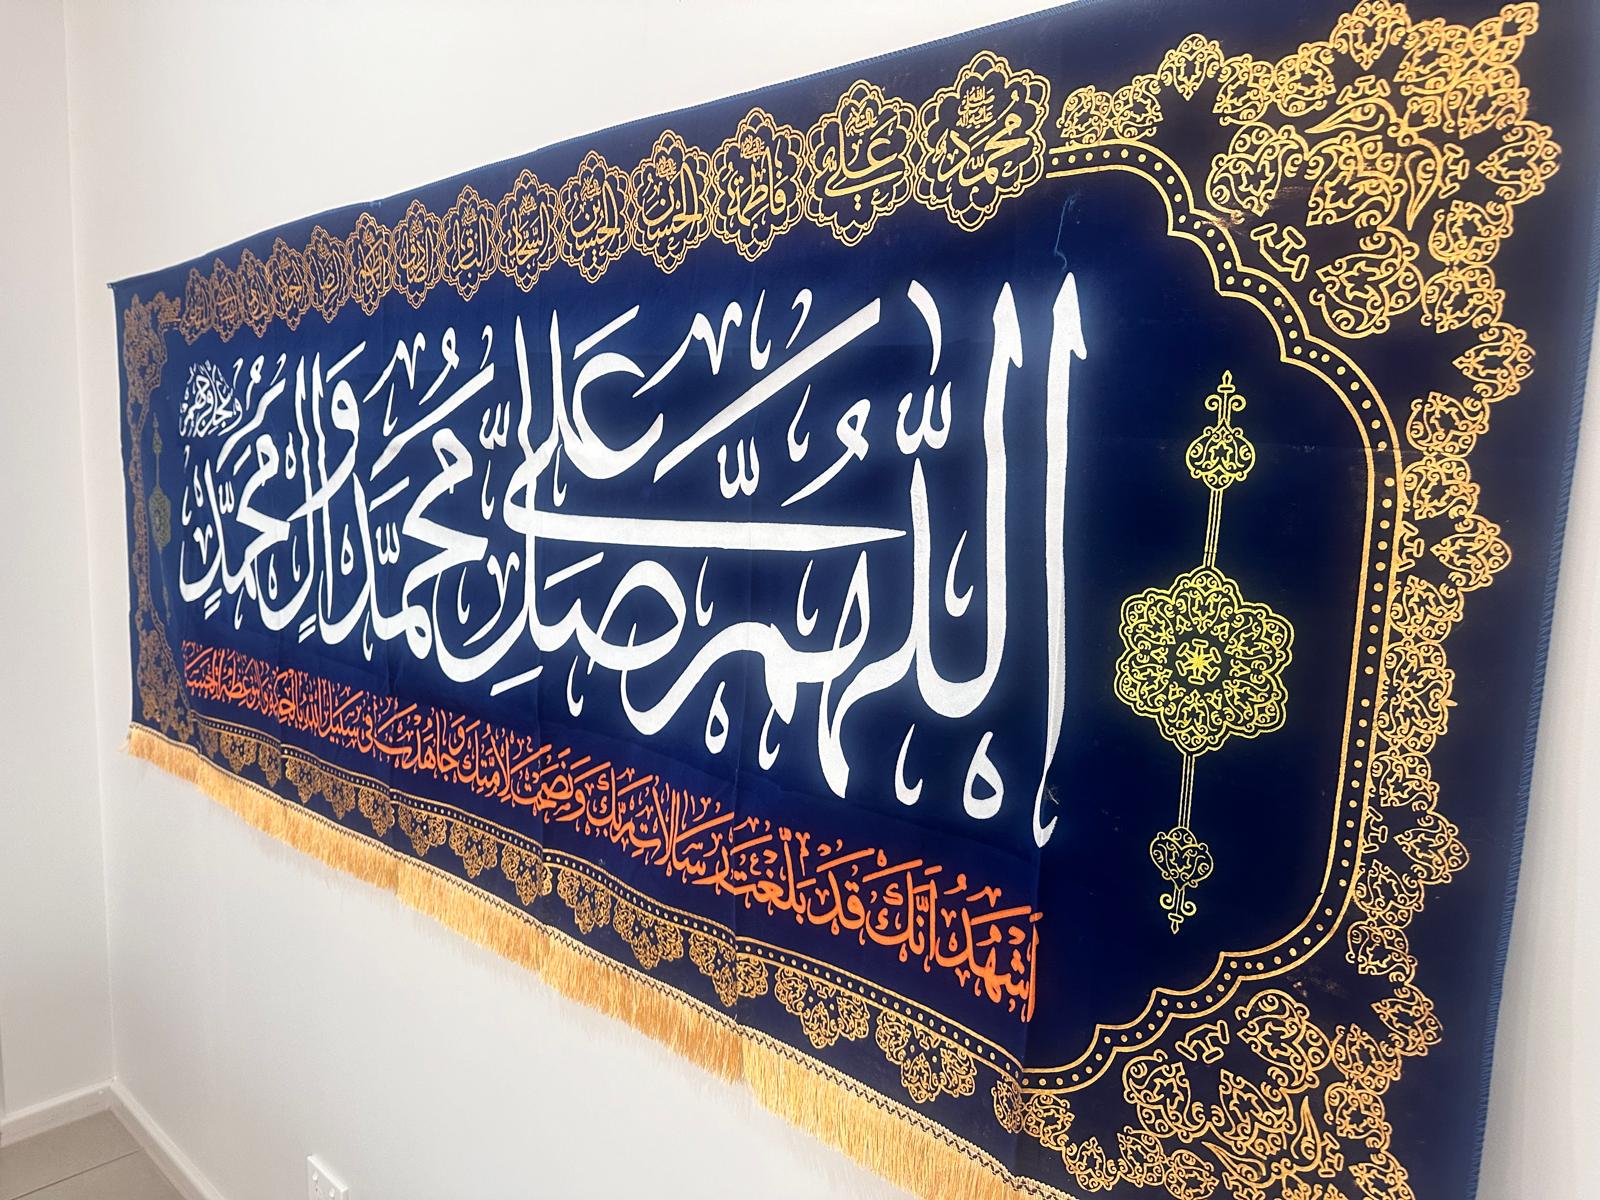 محمد صلى الله عليه وآله علي عليه السلام فاطمة الحسن الحسين السجاد الباقر الصادق الكاظم الرضا الجواد الهادي
اللّٰهُمَّ صَلِّ عَلَىٰ مُحَمَّدٍ وَآلِ مُحَمَّدٍ وَعَجِّلْ فَرَجَهُمْ
اَشْهَدُ اَنَّكَ قَدْ بَلَّغْتَ رِسَالَاتِ رَبِّكَ وَنَصَحْتَ لِاُمَّتِكَ وَجَاهَدْتَ فِي سَبِيلِ اللهِ بِالْحِكْمَةِ وَالْمَوْعِظَةِ الْحَسَنَةِ